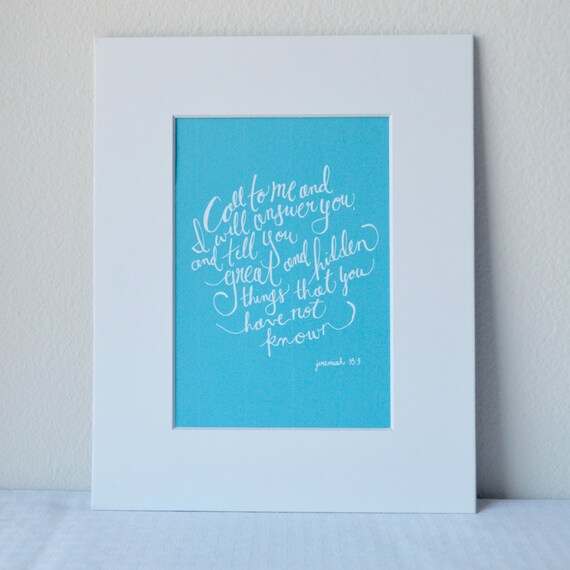 Call to me and
I will answer you,
and tell you
great and hidden
things that you
have not
known
jeremiah 33:3